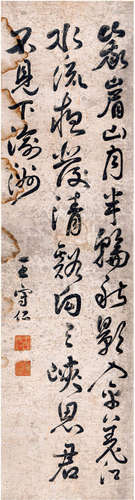 峩眉山月半輪秋影入平羌江
水流夜發清谿向三峽思君
不見下渝州
王守仁